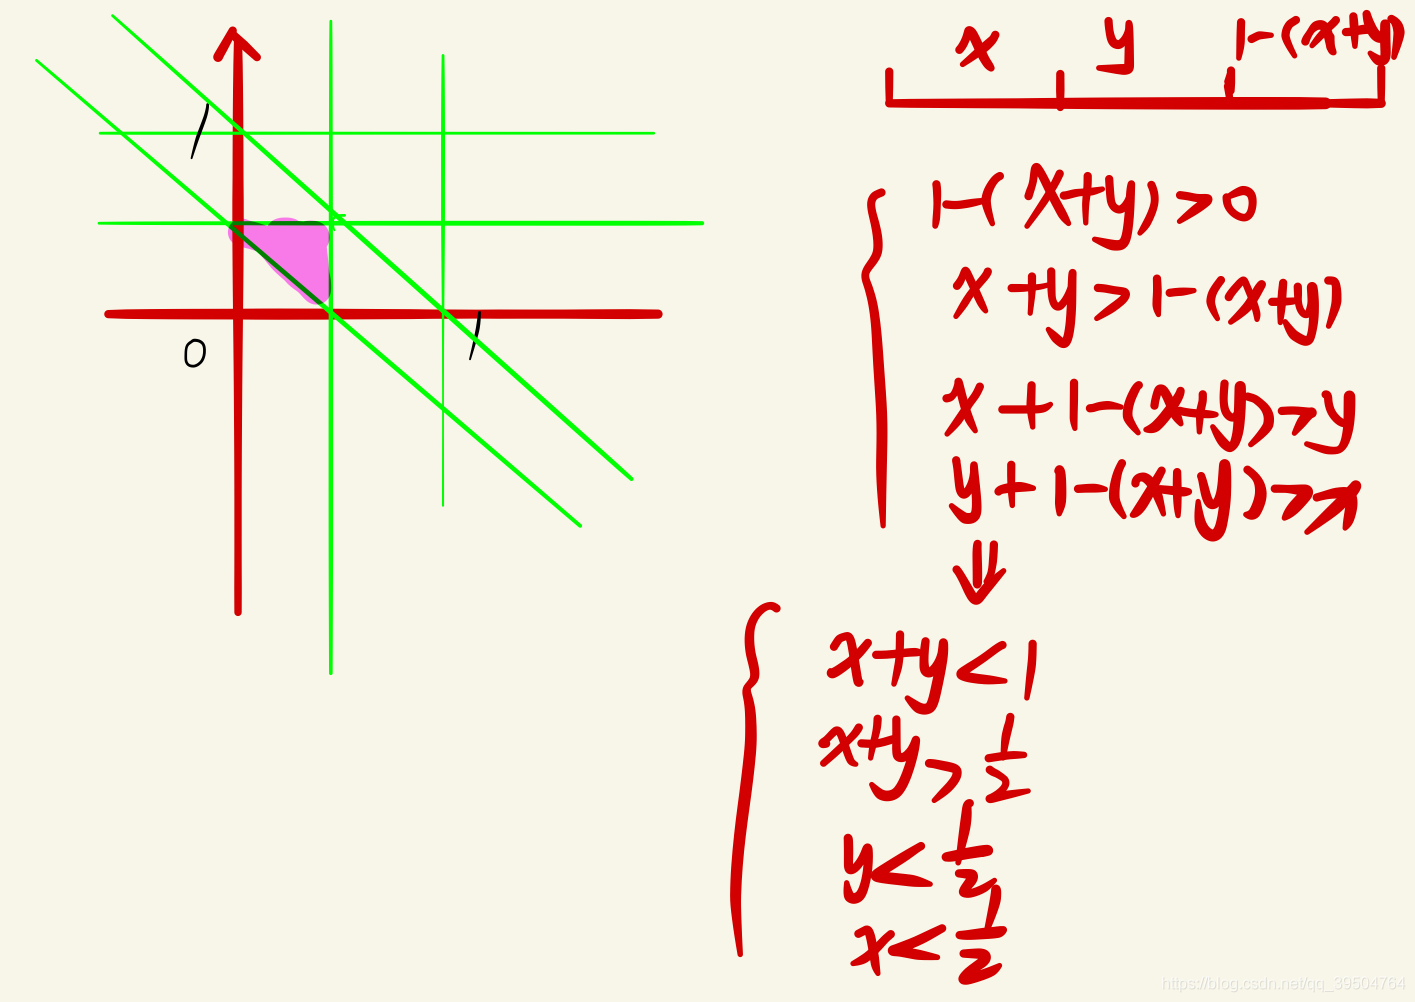 x y 1-(x+y)
1
0
1
1-(x+y)>0
x+y>1-(x+y)
x+1-(x+y)>y
y+1-(x+y)>x
⇓
x+y<1
x+y>1/2
y<1/2
x<1/2
https://blog.csdn.net/qq_39504764